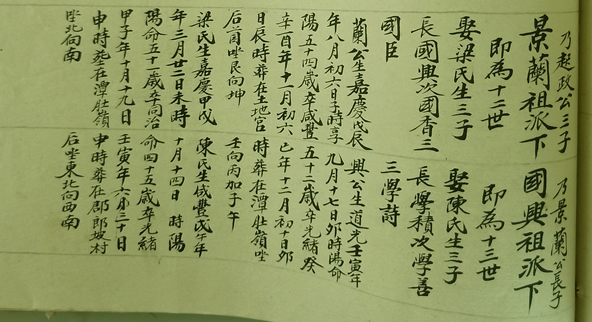 乃超政公三子
景蘭祖派下
即為十二世
娶梁氏生三子
長國興次國香三
國臣
蘭公生嘉慶戊辰
年八月初六日子時享
陽五十四歲卒咸豐
辛酉年十一月初六
日辰時葬在土地宮
后首坐艮向坤
梁氏生嘉慶甲戌
年三月廿二日未時
陽命五十一歲卒同治
甲子年十月十九日
申時塟在潭肚嶺
坐北向南
乃景蘭公長子
國興祖派下
即為十三世
娶陳氏生三子
長學積次學善
三學詩
興公生道光壬寅年
九月十七日卯時陽命
五十二歲卒光緒癸
巳年十二月初十日卯
時葬在潭肚嶺坐
壬向丙加子午
陳氏生咸豐戊午年
十月十四日 時陽
命四十五歲卒光緒
壬寅年六月三十日
申時葬在郎坡村
后坐東北向西南